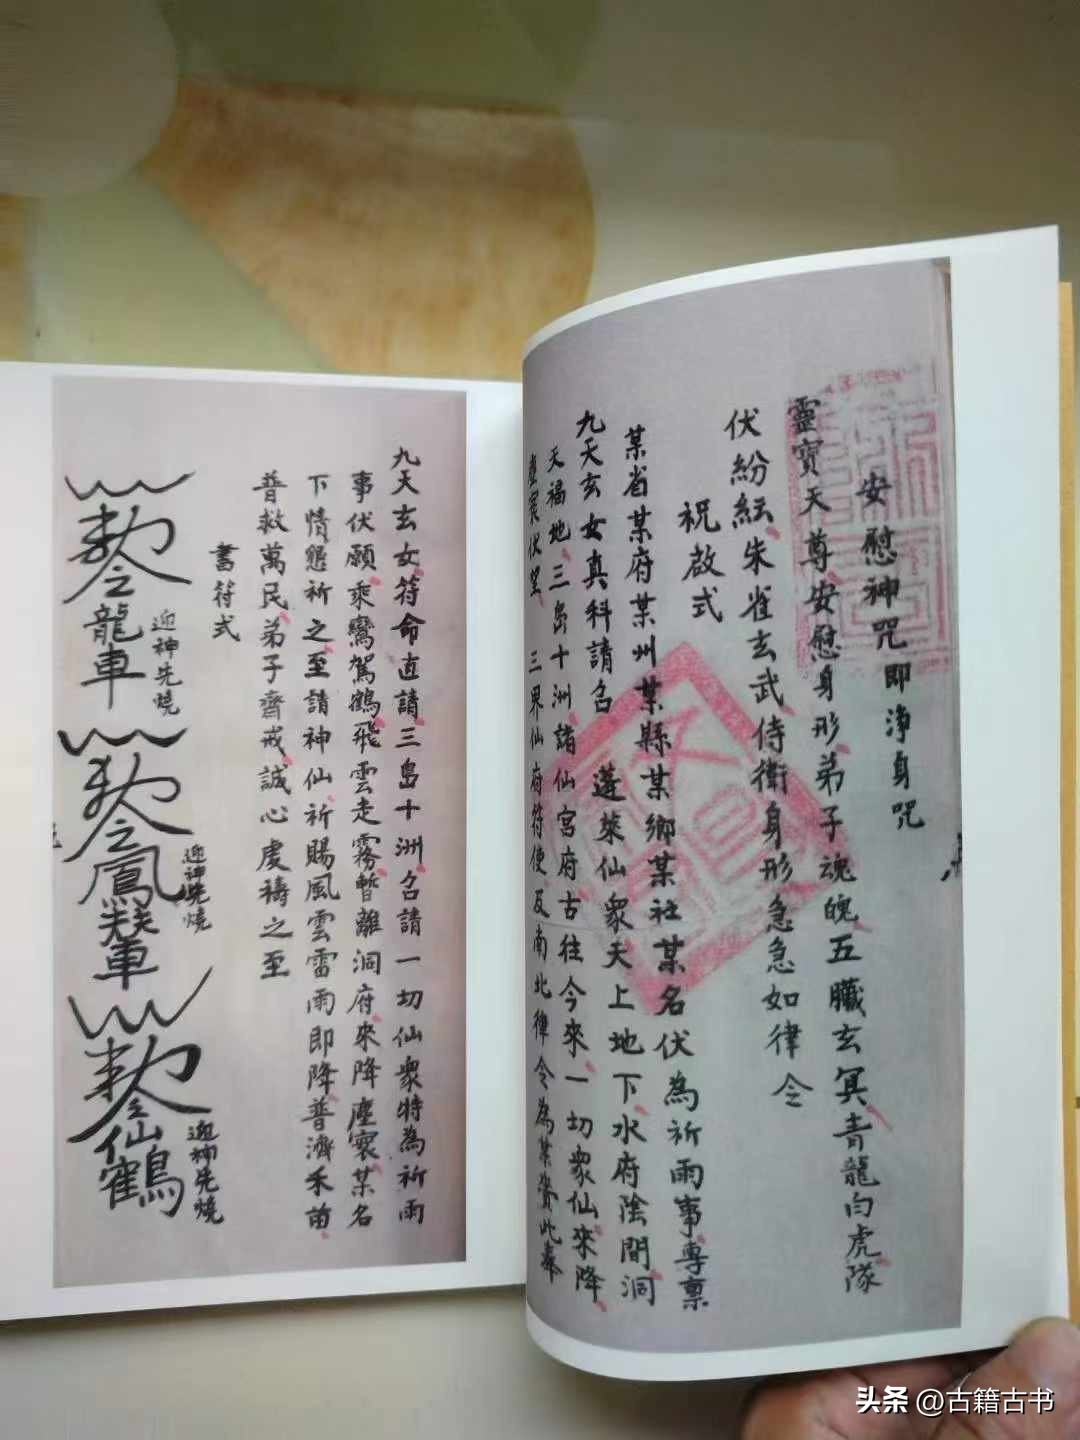 安慰神咒即淨身咒
靈寶天尊安慰身形弟子魂魄五臟玄冥青龍白虎隊
伏紛紜朱雀玄武侍衛身形急急如律令
祝啟式
某省某府某州某縣某鄉某社某名伏為祈雨事專稟
九天玄女真科請召 蓬萊仙衆天上地下水府陰間洞
天福地三島十洲諸仙宮府古往今來一切衆仙來降
塵寰伏望 三界仙府符使及南北律令為某賫此奉
九天玄女符命直請三島十洲召請一切仙衆特為祈雨
事伏願乘鸞駕鶴飛雲走霧暫離洞府來降塵寰某名
下情懇祈之至請神仙祈賜風雲雷雨即降普濟禾苗
普救萬民弟子齊戒誠心虔禱之至
書符式
敕令龍車
迎神先燒
敕令鳳輦
迎神先燒
敕令仙鶴
迎神先燒
头条 @古籍古书